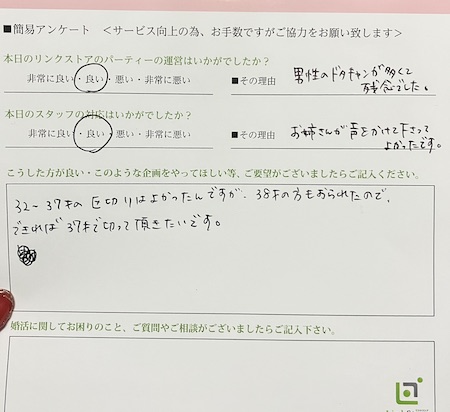 ■簡易アンケート ＜サービス向上の為、お手数ですがご協力をお願い致します＞
本日のリンクストアのパーティーの運営はいかがでしたか？
非常に良い・良い・悪い・非常に悪い ■その理由 男性のドタキャンが多くて
残念でした。
本日のスタッフの対応はいかがでしたか？
非常に良い・良い・悪い・非常に悪い ■その理由 お姉さんが声をかけて下さって
よかったです。
こうした方が良い・このような企画をやってほしい等、ご要望がございましたらご記入ください。
32～37才の区切りはよかったんですが、38才の方もおられたので、
できれば37才で切って頂きたいです。
婚活に関してお困りのこと、ご質問やご相談がございましたらご記入下さい。